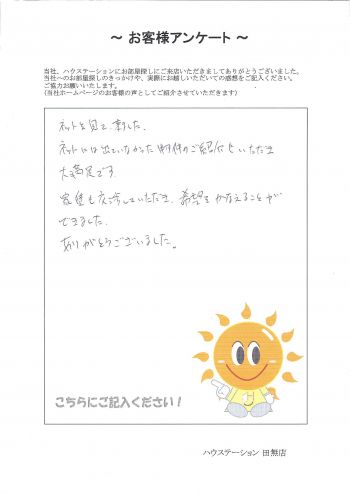 ～ お客様アンケート ～
当社、ハウステーションにお部屋探しにご来店いただきましてありがとうございました。
当社へのお部屋探しのきっかけや、実際にお越しいただいての感想をご記入ください。
ご協力お願いいたします。
(当社ホームページのお客様の声としてご紹介させていただきます)
ネットを見て、来ました。
ネットには出ていなかった物件のご紹介もいただき
大満足です。
家賃も交渉していただき、希望をかなえることが
できました。
ありがとうございました。
こちらにご記入ください！
ハウステーション 田無店